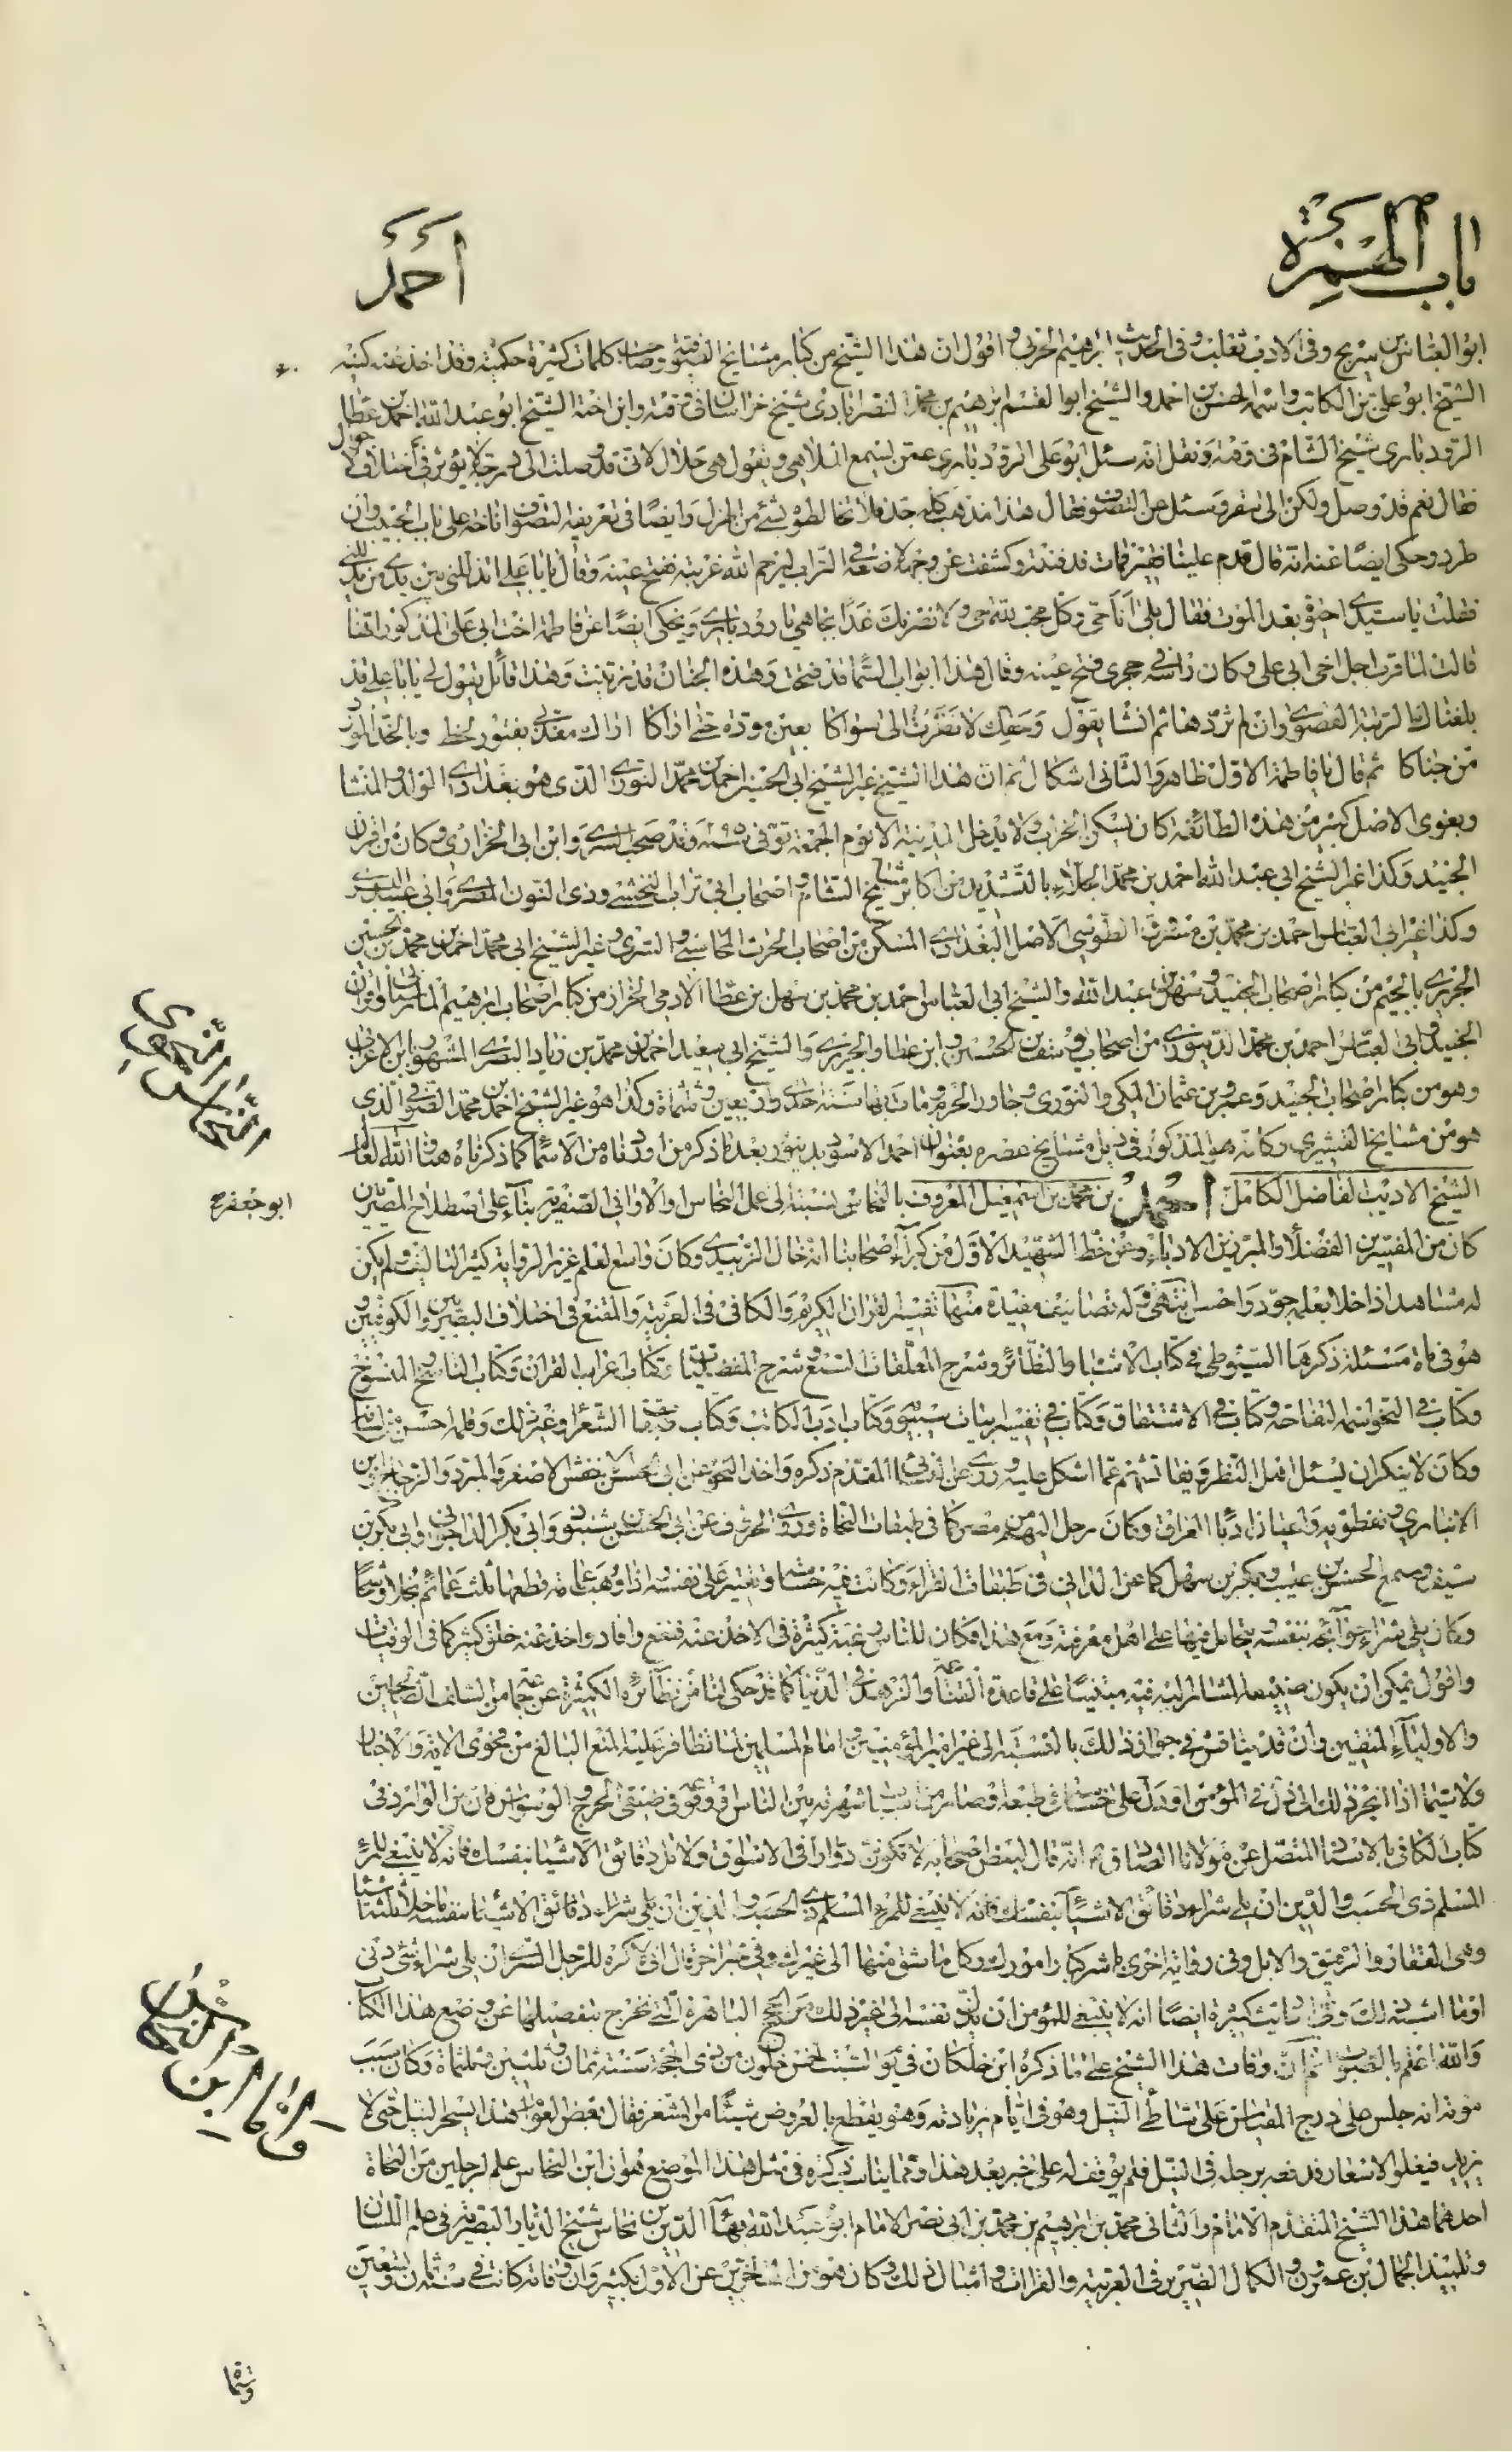 باب الهمزة
أحمد
ابو العباس بن سريج وفى الادب ثعلب وفى الحديث ابرهيم الحربى واقول ان هذا الشيخ من كبار مشايخ الصوفية وصاحب كلمات كثيرة حكمية وقد اخذ عنه كثير
الشيخ ابو على بن الكاتب واسمه الحسن بن احمد والشيخ ابو القسم ابرهيم بن محمد النصرابادى شيخ خراسان فى وقته وابن اخته الشيخ ابو عبد الله احمد بن عطا
الرودبارى شيخ الشام فى وقته ونقل انه سئل ابو على الرودبارى عمن يسمع الملاهى ويقول هى حلال لانى قد وصلت الى درجة لا يؤثر فى اختلاف الاحوال
فقال نعم قد وصل ولكن الى سقر وسئل عن التصوف فقال هذا مذهب كله جد فلا تخالطوه بشئ من الهزل وايضا فى تعريفه التصوف اناخة على باب الحبيب وان
طرد وحكى ايضا عنه انه قال قدم علينا فقير فمات فدفنته وكشفت عن وجهه لاضعه فى التراب ليرحم الله غربته ففتح عينيه وقال يا ابا على تذللنى بين يدى من يدللنى
فقلت يا سيدى احيوة بعد الموت فقال بلى انا حى وكل محب لله حى ولانصرنك غدا بجاهى يا رودبارى ويحكى ايضا عن فاطمة اخت ابى على المذكور انها
قالت لما قرب اجل اخى ابى على وكان راسه فى حجرى فتح عينيه وقال هذا ابواب السما قد فتحت وهذه الجنان قد زينت وهذا قائل يقول لى يا ابا على قد
بلغناك الرتبة القصوى وان لم تردها ثم انشا يقول وحقك لا نظرت الى سواكا بعين مودة حتى اراكا اراك معذبى بفتور لحظ وبالخد المورد
من جناكا ثم قال يا فاطمة الاول ظاهر والثانى اشكال ثم ان هذا الشيخ غير الشيخ ابى الحسين احمد بن محمد النورى الذى هو بغدادى المولد والمنشا
وبغوى الاصل كبير من هذه الطائفة كان يسكن الخراب ولا يدخل المدينة الا يوم الجمعة توفى وقد صحب السرى وابن ابى الحوارى وكان من اقران
الجنيد وكذا غير الشيخ ابى عبد الله احمد بن محمد الجلاء بالتشديد من اكابر مشايخ الشام واصحاب ابى تراب النخشبى وذى النون المصرى وابى عبيد البسرى
وكذا غير ابى العباس احمد بن محمد بن مسروق الطوسى الاصل البغدادى المسكن من اصحاب الحرث المحاسبى والسرى وغير الشيخ ابى محمد احمد بن محمد بن الحسين
الجريرى بالجيم من كبار اصحاب الجنيد وسهل بن عبد الله والشيخ ابى العباس احمد بن محمد بن سهل بن عطا الادمى الخراز من كبار اصحاب ابرهيم المارستانى واقران
الجنيد وابى العباس احمد بن محمد الدينورى من اصحاب يوسف بن الحسين وابن عطا والجريرى والشيخ ابى سعيد احمد بن محمد بن زياد البصرى المشهور بابن الاعرابى
وهو من كبار اصحاب الجنيد وعمرو بن عثمان المكى والنورى وجاور الحرم ومات بها سنة احدى واربعين وثلثمائة وكذا هو غير الشيخ احمد بن محمد الصوفى الذى
هو من مشايخ القشيرى وكانه هو المذكور فى ذيل مشايخ عصره بعنوان احمد الاسود بدينور بعد ما ذكر من اوردناه من الاسماء كما ذكرناه هنا والله العالم
الشيخ الاديب الفاضل الكامل احمد بن محمد بن اسمعيل المعروف بالنحاس نسبة الى عمل النحاس او الاوانى الصفرية بناء على اصطلاح المصريين
ابو جعفر
النحاس النحوى
كان من المفسرين الفضلاء والمبرزين الادباء وعن خط الشهيد الاول من كبراء اصحابنا انه خال الزبيدى وكان واسع العلم غزير الرواية كثير التاليف ولم يكن
له مشاهدا اذا خلا بعلمه جود واحسن انتهى وله تصانيف مفيدة منها تفسير القران الكريم والكافى فى العربية والمقنع فى اختلاف البصريين والكوفيين و
هو فى مائة مسئلة ذكرها السيوطى فى كتاب الاشباه والنظائر وشرح المعلقات السبع وشرح المفضليات وكتاب اعراب القران وكتاب الناسخ والمنسوخ
وكتاب فى النحو اسمه التفاحة وكتاب فى الاشتقاق وكتاب فى تفسير ابيات سيبويه وكتاب ادب الكاتب وكتاب طبقات الشعراء وغير ذلك وقلمه احسن من لسانه
وكان لا ينكر ان يسئل اهل النظر ويفاتشهم عما اشكل عليه وروى عن النسائى المقدم ذكره واخذ النحو عن ابى الحسن الاخفش الاصغر والمبرد والزجاج وابن
الانبارى ونفطويه واعيان ادباء العراق وكان رحل اليهم من مصر كما فى طبقات النحاة وروى الحروف عن ابى الحسن بن شنبوذ وابى بكر الداجونى وابى بكر بن
سيف وسمع الحسن بن غليب وبكر بن سهل كما عن الدانى فى طبقات القراء وكانت فيه خساسة وتقتير على نفسه اذا وهب عمامة قطعها ثلث عمائم بخلا وشحا
وكان يلى شراء حوائجه بنفسه ويتحامل فيها على اهل معرفته ومع هذا فكان للناس رغبة كثيرة فى الاخذ عنه فنفع وافاد واخذ عنه خلق كثير كما فى الوفيات
واقول يمكن ان يكون صنيعه المشار اليه فيه مبتنيا على قاعدة القناعة والزهد فى الدنيا كما قد حكى لنا من نظائره الكثيرة عن جم من السلف الصالحين
والاولياء المتقين وان قد يناقش فى جواز ذلك بالنسبة الى غير امير المؤمنين امام المسلمين لما تظافر عليه المنع البالغ من فحوى الاية والاخبار
ولا سيما اذا انجر ذلك الى ذل فى المؤمن او دل على خساسة طبعه وصار من اسباب شهرته بين الناس او وقوعه فى ضيق الحرج والوسواس فان من الوارد فى
كتاب الكافى بالاسناد المتصل عن مولانا الصادق انه قال لبعض اصحابه لا تكونن دوارا فى الاسواق ولا تل دقائق الاشياء بنفسك فانه لا ينبغى للمرء
المسلم ذى الحسب والدين ان يلى شراء دقائق الاشياء بنفسه ما خلا ثلثة اشياء
وهى العقار والرقيق والابل وفى رواية اخرى باشر كبار امورك وكل ما شق منها الى غيرك وفى خبر اخر قال انى لاكره للرجل السرى ان يلى شراء شئ دنى
او ما اشبه ذلك وفى احاديث كثيرة ايضا انه لا ينبغى للمؤمن ان يذل نفسه الى غير ذلك من الحجج الباهرة التى نخرج بتفصيلها عن وضع هذا الكتاب
والله اعلم بالصواب ثم ان وفات هذا الشيخ على ما ذكره ابن خلكان فى يوم السبت لخمس خلون من ذى الحجة سنة ثمان وثلثين وثلثمائة وكان سبب
موته انه جلس على درج المقياس على شاطئ النيل وهو فى ايام زيادته وهو يقطع بالعروض شيئا من الشعر فقال بعض العوام هذا يسحر النيل حتى لا
يزيد فيغلو الاسعار فدفعه برجله فى النيل فلم يوقف له على خبر بعد هذا ومما يناسب ذكره فى مثل هذا الموضع هو ان ابن النحاس علم لرجلين من النحاة
احدهما هذا الشيخ المتقدم الامام والثانى محمد بن ابرهيم بن محمد بن ابى نصر الامام ابو عبد الله بهاء الدين بن نحاس شيخ الديار المصرية فى علم اللسان
وتلميذ الجمال بن عمرون والكمال الضرير فى العربية والقراات وامثال ذلك وكان هو من المتاخرين عن الاول بكثير وان وفاته كانت فى سنة ثمان وتسعين
واما ابن النحاس
وستما